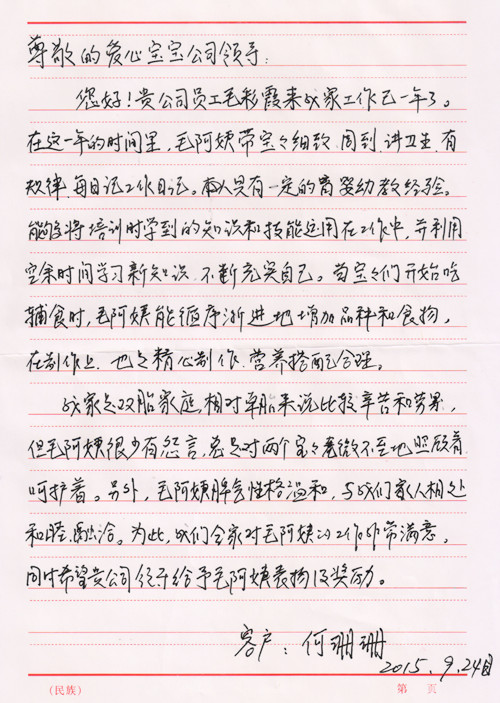 尊敬的爱心宝宝公司领导：
您好！贵公司员工毛彩霞来我家工作已一年了。
在这一年的时间里，毛阿姨带宝々细致.周到.讲卫生.有
规律.每日记工作日记。本人具有一定的育婴幼教经验。
能够将培训时学到的知识和技能运用在工作中，并利用
空余时间学习新知识.不断充实自己。当宝々们开始吃
辅食时，毛阿姨能循序渐进地增加品种和食物，
在制作上.也是精心制作.营养搭配合理。
我家是双胎家庭，相对单胎来说比较辛苦和劳累，
但毛阿姨很少有怨言，总是对两个宝々无微不至地照顾着
呵护着。另外，毛阿姨脾气性格温和，与我们家人相处
和睦.融洽。为此，我们全家对毛阿姨的工作非常满意，
同时希望贵公司能给予毛阿姨表扬及奖励。
客户：何珊珊
2015.9.24日
（民族） 第 页